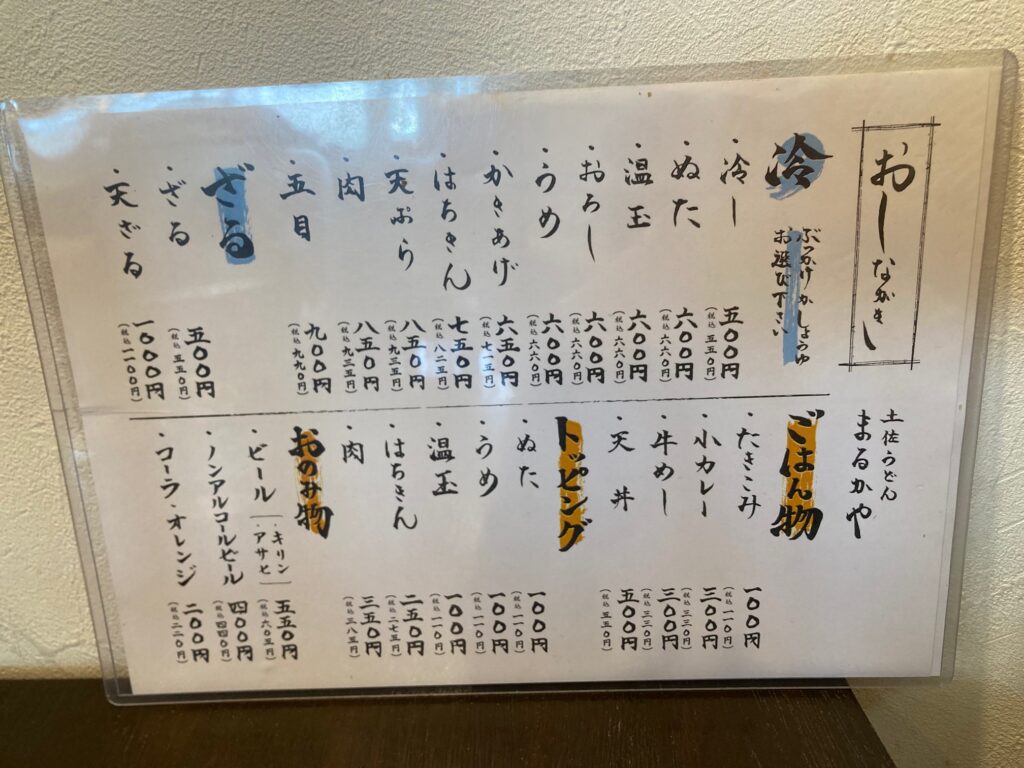 おしながき
土佐うどん
まるかや
冷
ぶっかけかしょうゆ
お選び下さい
・冷し 五〇〇円(税込 五五〇円)
・ぬた 六〇〇円(税込 六六〇円)
・温玉 六〇〇円(税込 六六〇円)
・おろし 六〇〇円(税込 六六〇円)
・うめ 六〇〇円(税込 六六〇円)
・かきあげ 六五〇円(税込 七一五円)
・はちきん 七五〇円(税込 八二五円)
・天ぷら 八五〇円(税込 九三五円)
・肉 八五〇円(税込 九三五円)
・五目 九〇〇円(税込 九九〇円)
ざる
・ざる 五〇〇円(税込 五五〇円)
・天ざる 一〇〇〇円(税込 一一〇〇円)
ごはん物
・たきこみ 一〇〇円(税込 一一〇円)
・小カレー 三〇〇円(税込 三三〇円)
・牛めし 三〇〇円(税込 三三〇円)
・天丼 五〇〇円(税込 五五〇円)
トッピング
・ぬた 一〇〇円(税込 一一〇円)
・うめ 一〇〇円(税込 一一〇円)
・温玉 一〇〇円(税込 一一〇円)
・はちきん 二五〇円(税込 二七五円)
・肉 三五〇円(税込 三八五円)
おのみ物
・ビール ・キリン ・アサヒ 五五〇円(税込 六〇五円)
・ノンアルコールビール 四〇〇円(税込 四四〇円)
・コーラ・オレンジ 二〇〇円(税込 二二〇円)